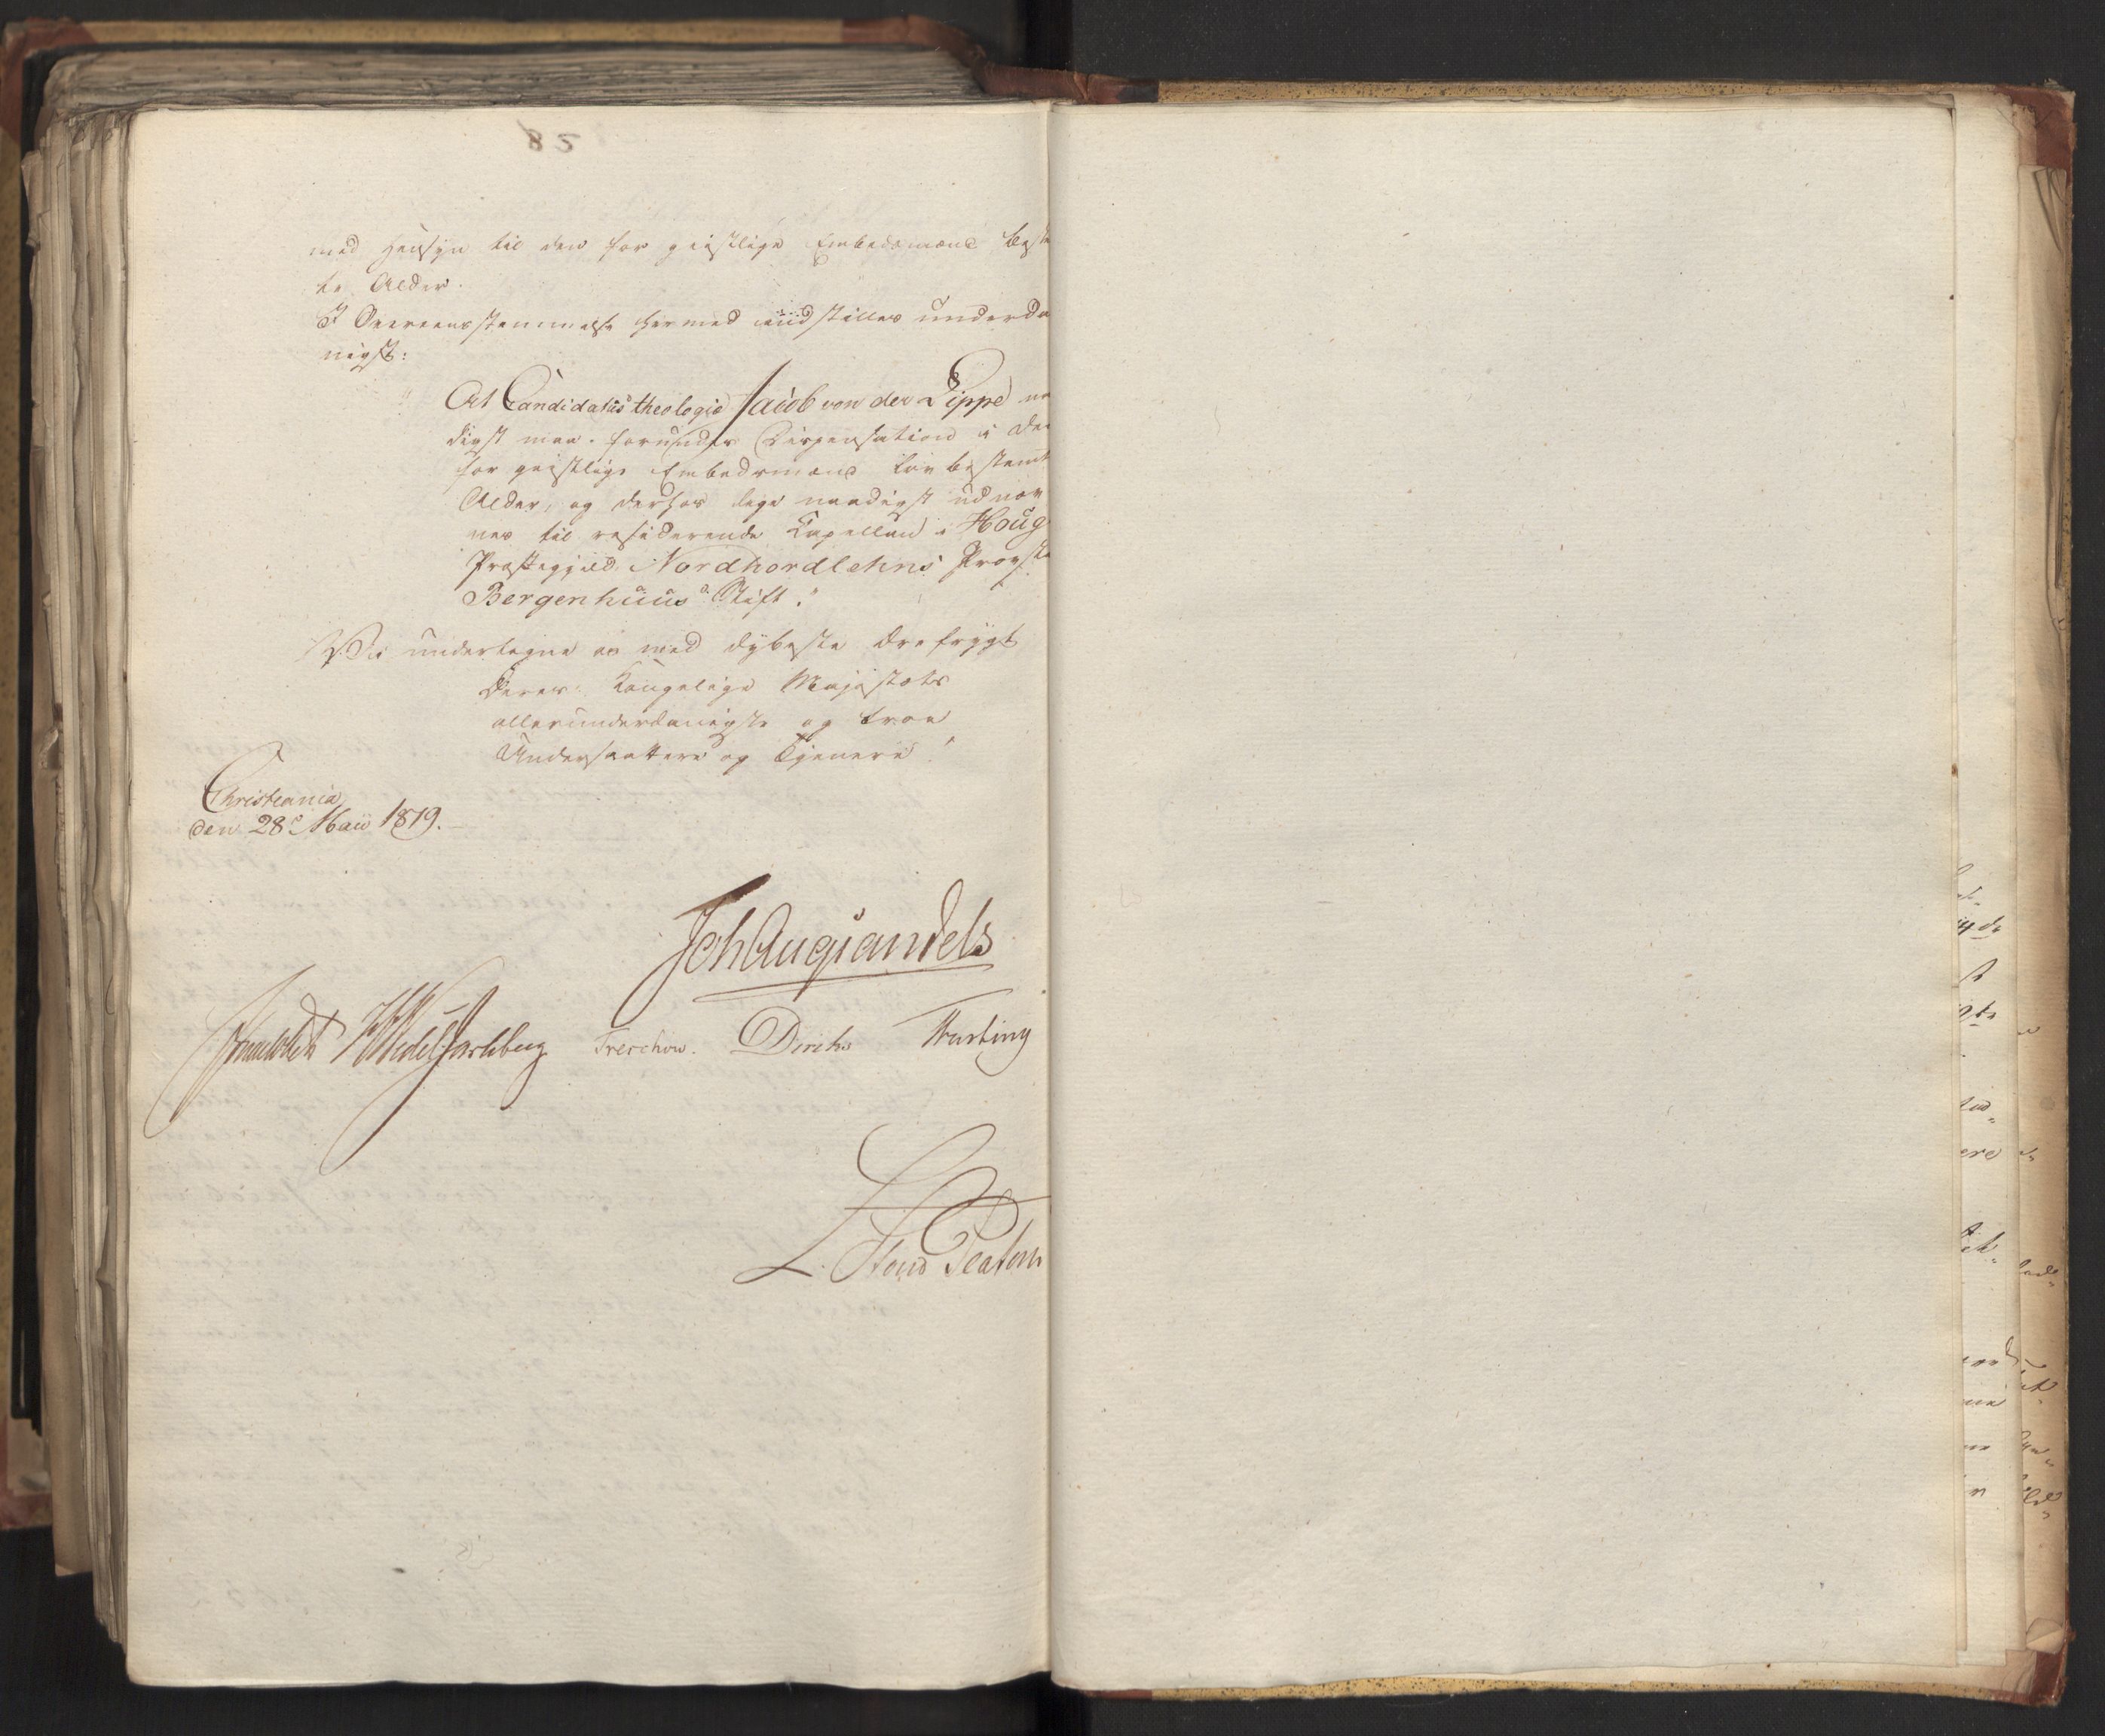 85
med Hensyn til den for geistlige Embedsmænd beste
te Alder.
I Overeensstemmelse hermed indstilles underda
nigst:
"At Candidatus theologiæ Jacob von der Lippe na
digst maa forundes Dispensation i den
for geistlige Embedsmænd lovbestemt
Alder, og derhos lige naadigst udnæv
nes til residerende Kapellan i Houg
Præstegjeld, Nordhordlehns Provstie
Bergenhuus Stift."
Vi undertegne os med dybeste Ærefrygt
Deres Kongelige Majestæts
allerunderdanigste og troe
Undersaattere og Tjenere
Christiania
den 28e Maii 1819.
Joh Aug Sandels
Sommerhielm HWedel Jarlsberg Treschow. Diriks Fasting
L. Stoud Platou